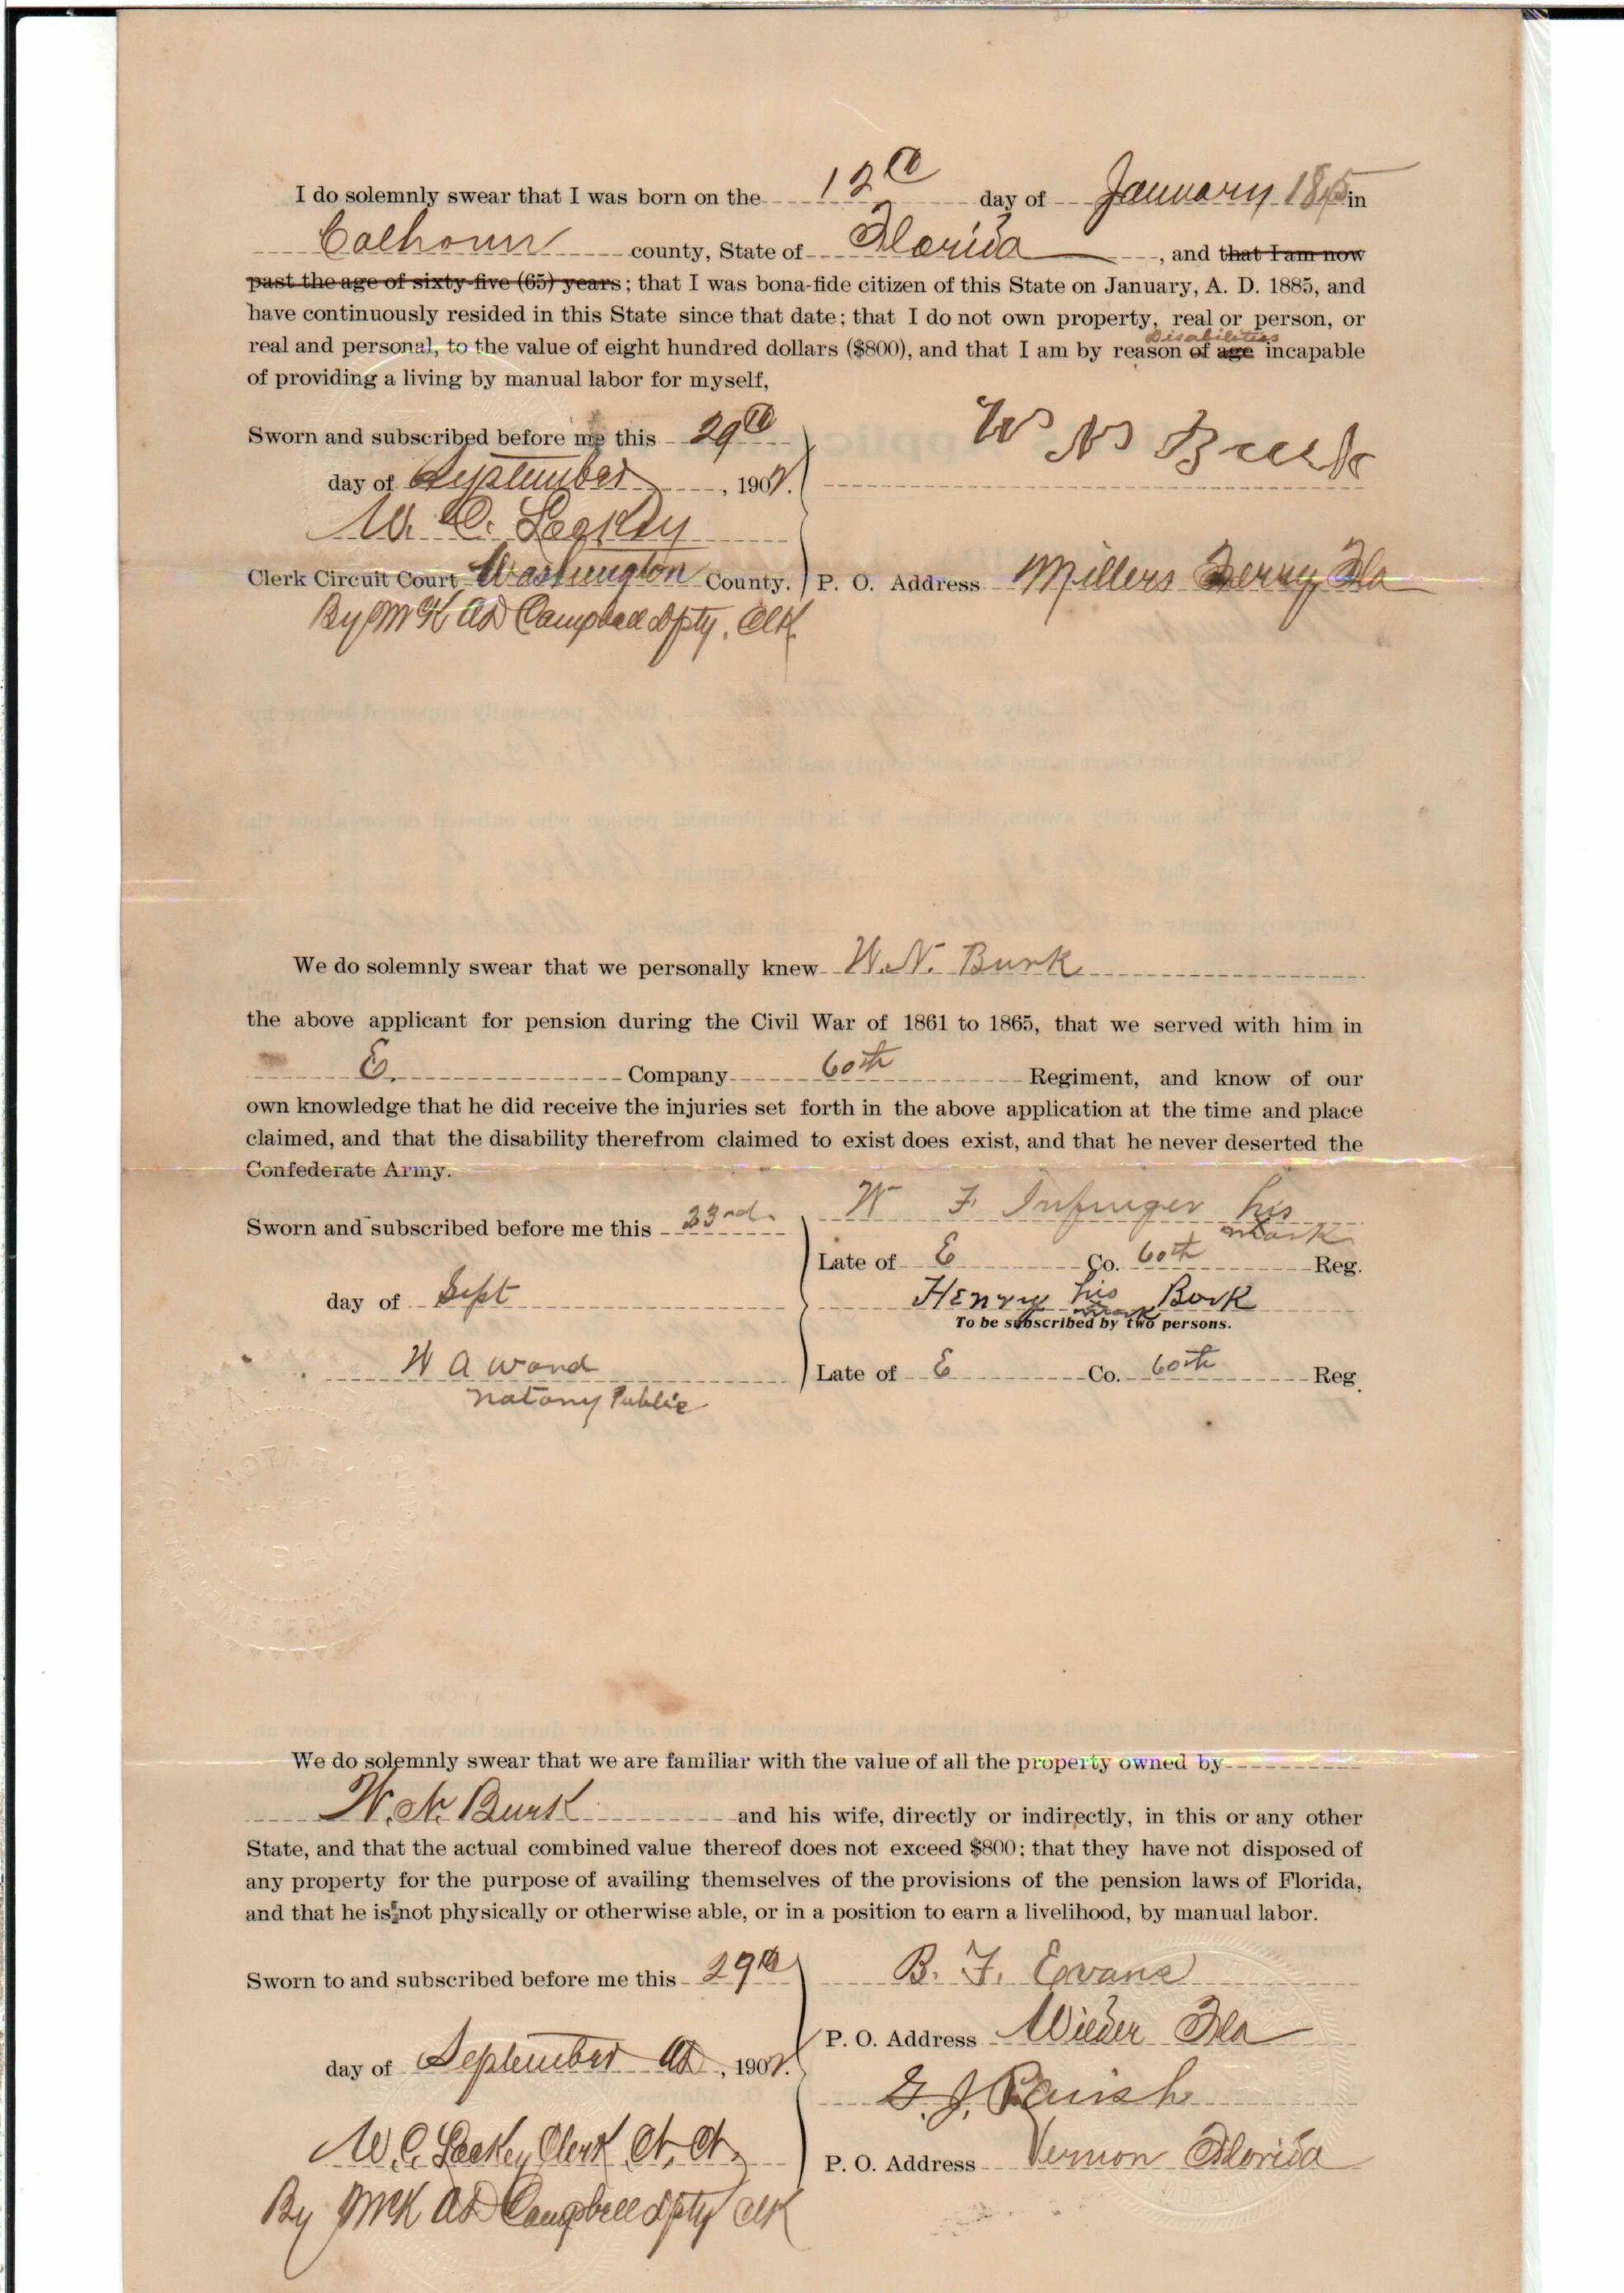 I do solemnly swear that I was born on the 12th day of January 1845 in
Calhoun county, State of Florida, and that I am now
past the age of sixty-five (65) years; that I was bona-fide citizen of this State on January, A. D. 1885, and
have continuously resided in this State since that date; that I do not own property, real or person, or
real and personal, to the value of eight hundred dollars ($800), and that I am by reason of age Disabilities incapable
of providing a living by manual labor for myself,
Sworn and subscribed before me this 29th
W N Burk
day of September, 1907.
W. C. Lockey
Clerk Circuit Court Washington County. P. O. Address Millers Ferry, Fla
By McK AD Campbell Dpty. Clk.
We do solemnly swear that we personally knew W. N. Burk
the above applicant for pension during the Civil War of 1861 to 1865, that we served with him in
E. Company 60th Regiment, and know of our
own knowledge that he did receive the injuries set forth in the above application at the time and place
claimed, and that the disability therefrom claimed to exist does exist, and that he never deserted the
Confederate Army.
Sworn and subscribed before me this 23rd. W F. Infinger his mark
Late of E Co. 60th Reg.
day of Sept Henry his mark Bork
To be subscribed by two persons.
W A Wond Late of E Co. 60th Reg.
Notary Public
We do solemnly swear that we are familiar with the value of all the property owned by
W. N. Burk and his wife, directly or indirectly, in this or any other
State, and that the actual combined value thereof does not exceed $800; that they have not disposed of
any property for the purpose of availing themselves of the provisions of the pension laws of Florida,
and that he is not physically or otherwise able, or in a position to earn a livelihood, by manual labor.
Sworn to and subscribed before me this 29th B. F. Evans
P. O. Address Fla
day of September AD, 1907.
G. J. Parish
W. C. Lockey Clerk Ct. Ct.
P. O. Address Vernon Florida
By McK AD Campbell Dpty Clk